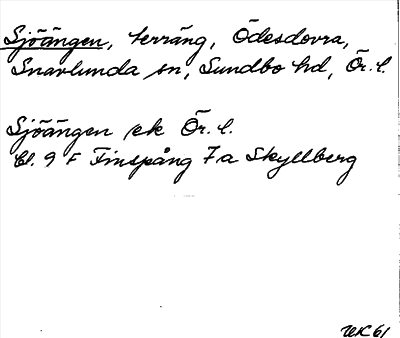 Sjöängen, terräng, Ödesdovra,
Snavlunda sn, Sundbo hd, Ör. l.
Sjöängen ek Ör. l.
Bl. 9 F Finspång 7 a Skyllberg
WK 61